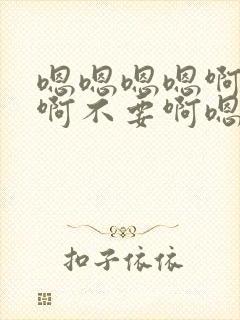 嗯嗯嗯嗯啊
啊不要啊嗯
扣子依依